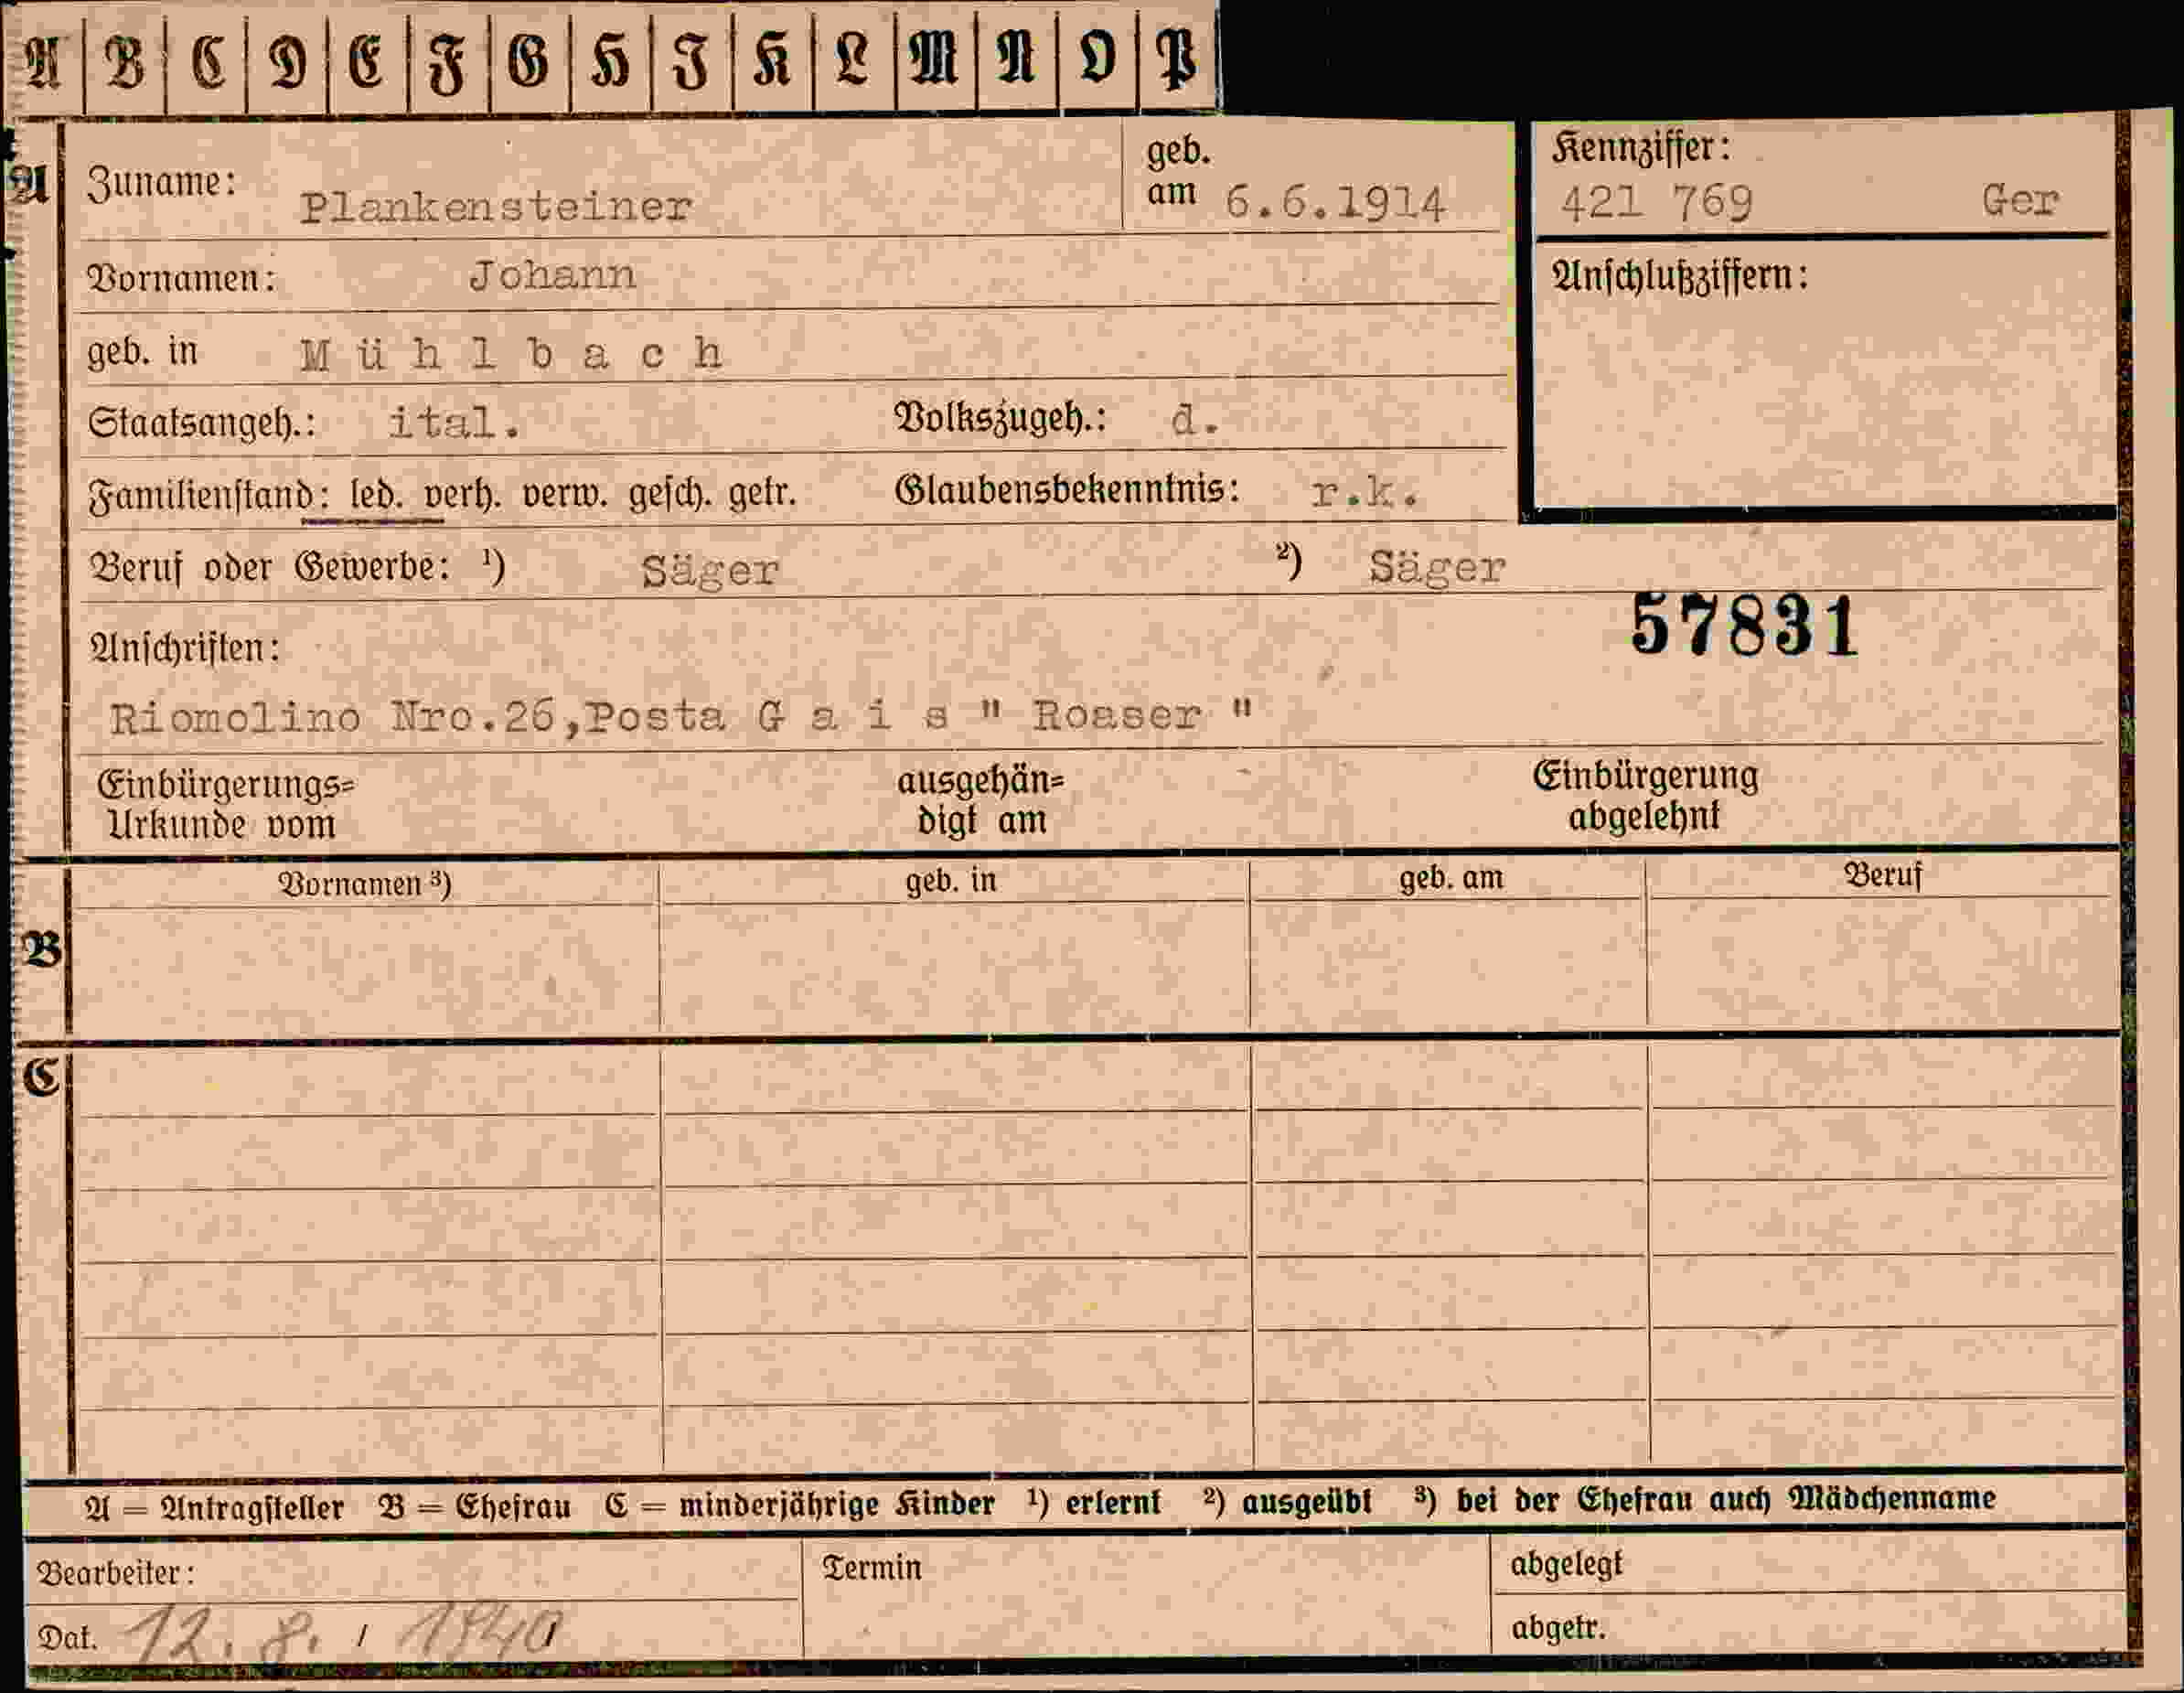 A B C D E F G H I K L M N O P
A Zuname: Plankensteiner geb. am 6.6.1914 Kennziffer: 421 769 Ger
Vornamen: Johann Anschlußziffern:
geb. in M ü h l b a c h
Staatsangeh.: ital. Volkszugeh.: d.
Familienstand: led. verh. verw. gesch. getr. Glaubensbekenntnis: r.k.
Beruf oder Gewerbe: ¹) Säger ²) Säger
57831
Anschriften:
Riomolino Nro.26,Posta G a i s " Roaser "
Einbürgerungs= ausgehän= Einbürgerung
Urkunde vom digt am abgelehnt
Vornamen ³) geb. in geb. am Beruf
B
C
A = Antragsteller B = Ehefrau C = minderjährige Kinder ¹) erlernt ²) ausgeübt ³) bei der Ehefrau auch Mädchenname
Bearbeiter: Termin abgelegt
Dat. 12. 8. / 1940 abgetr.